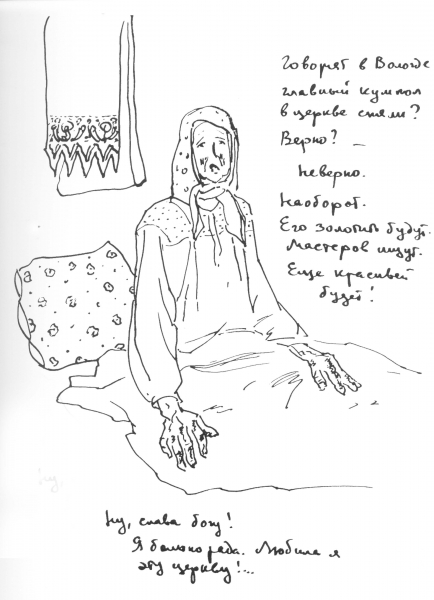 Говорят в Вологде
главный купол
в церкве сняли?
Верно? —
Неверно.
Наоборот.
Его золотить будут.
Мастеров ищут.
Еще красивей
будет!
Ну, слава богу!
Я больно рада. Любила я
эту церкву!...